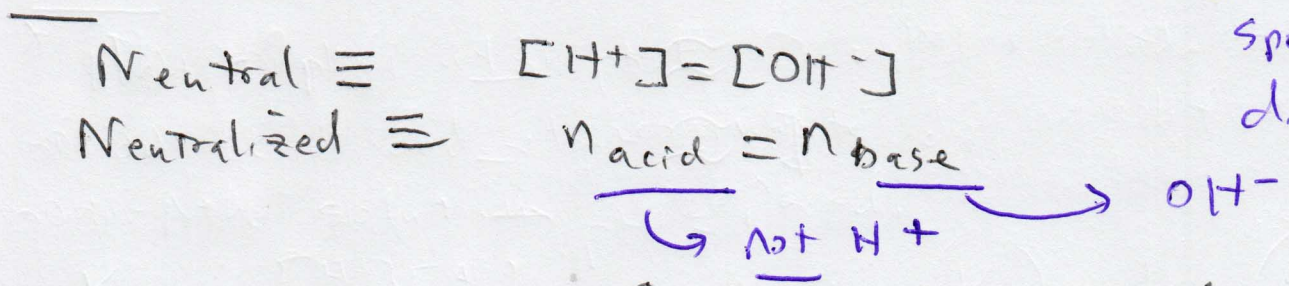 Neutral ≡ [H+] = [OH-]
Neutralized ≡ n acid = n base
OH-
not H+